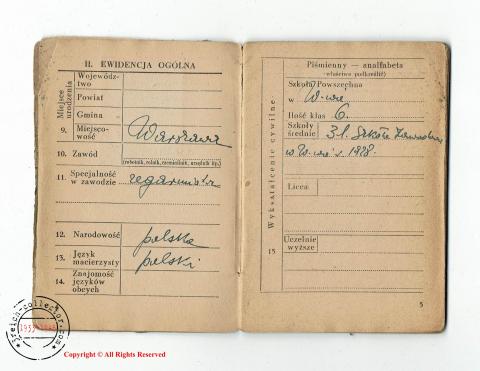 II. EWIDENCJA OGÓLNA
Miejsce urodzenia
Wojewódz-
two
Powiat
Gmina
9. Miejsco-
wość Warszawa
10. Zawód
(robotnik, rolnik, rzemieślnik, urzędnik itp.)
11. Specjalność
w zawodzie zegarmistrz
12. Narodowość polska
13. Język
macierzysty polski
14. Znajomość
języków
obcych
15 Wykształcenie cywilne
Piśmienny — analfabeta
(właściwe podkreślić)
Szkoła Powszechna
w W-wie
Ilość klas 6.
Szkoły
średnie 3 l. Szkoła Zawodowa
w W-wie 1928.
Licea
Uczelnie
wyższe
5
reich-collector.com
1933-1945
Copyright © All Rights Reserved